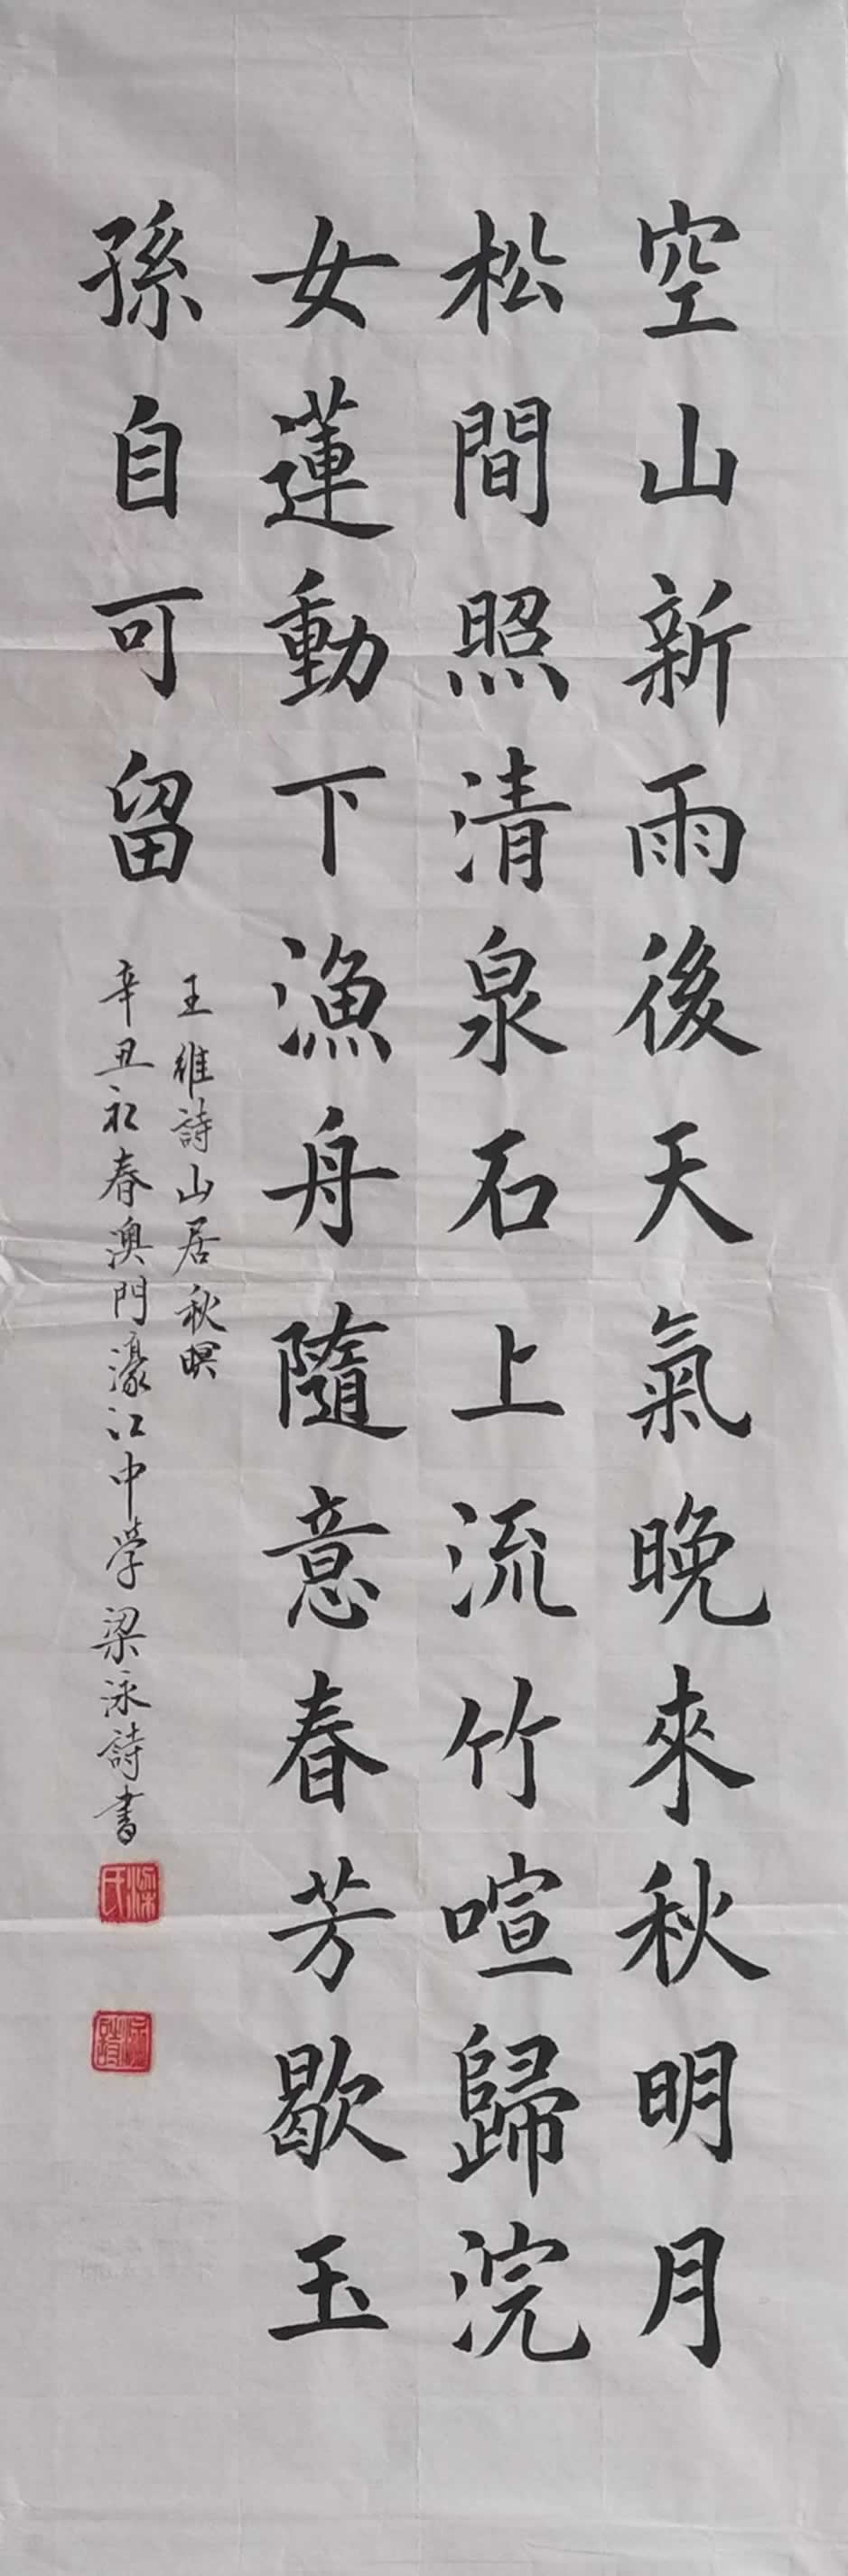 空山新雨後天氣晚來秋明月
松間照清泉石上流竹喧歸浣
女蓮動下漁舟隨意春芳歇玉
孫自可留
王維詩山居秋暝
辛丑初春澳門濠江中学梁泳詩书
梁氏
泳詩